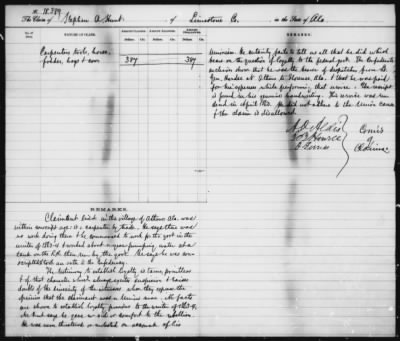 No. 11.389
The Claim of Stephen A. Hunt, of Limestone Co., in the State of Ala.
No. of Item. NATURE OF CLAIM. AMOUNT CLAIMED. AMOUNT ALLOWED. AMOUNT DISALLOWED.
Carpenters tools, horse,
fodder, hogs & corn 387 387
REMARKS.
Claimant lived in the village of Athens Ala. was
within conscript age: is a carpenter by trade. He says there was
no work doing there & he commenced to work for the govt in the
winter of 1863-4 & worked about a year pumping water at a
tank on the R.R. then run by the govt. He says he was con-
scripted took an oath to the Confederacy.
The testimony to establish loyalty is tame, pointless
& of that character which always excites suspicion & raises
doubts of the sincerity of the witnesses when they express the
opinion that the claimant was a Union man. No facts
are shown to establish loyalty previous to the winter of 1863-4.
He says he gave no aid or comfort to the rebellion.
He was never threatened or molested on account of his
REMARKS.
Unionism. He certainly fails to tell us all that he did which
bears on the question of loyalty to the federal govt. The Confederate
archives show that he was the bearer of dispatches from Lt.
Gen. Hardee at Athens to Florence, Ala. & that he was paid
for his expenses while performing that service. The receipt
is found in his genuine handwriting. This service was ren-
dered in April 1862. He did not adhere to the Union cause
& the claim is disallowed.
A. O. Aldis
J. B. Howell
O. Ferriss
Comrs
of
Claims.